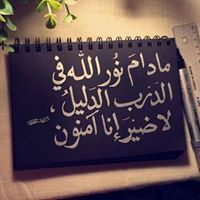 مادام نُور الله في
الدَرب الدَليلُ ،
لا ضَيْرَ إنا آمنون